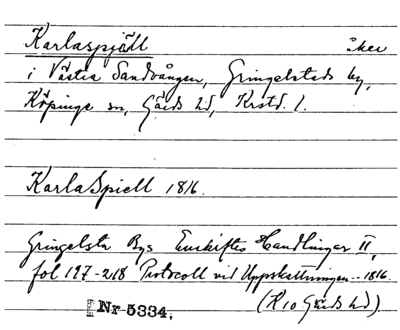 Karlaspjäll åker
i Västra Sandvången, Gringelstads by,
Köpinge sn, Gärds hd, Krstd. l.
Karla Spiell 1816.
Gringelsta Bys Enskiftes Handlingar II,
fol 197-218 Protocoll vid Uppskattningen.. 1816.
(R 10 Gärds hd)
Nr 5334.